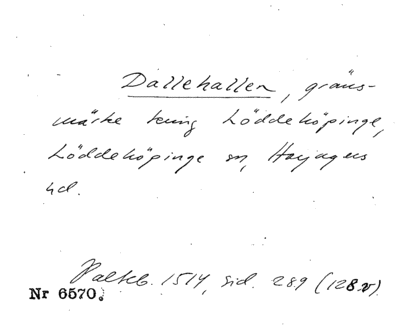 Dallehallen, gräns-
märke kring Löddeköpinge,
Löddeköpinge sn, Harjagers
hd.
Palteb. 1514, sid. 289 (128.v).
Nr 6570.